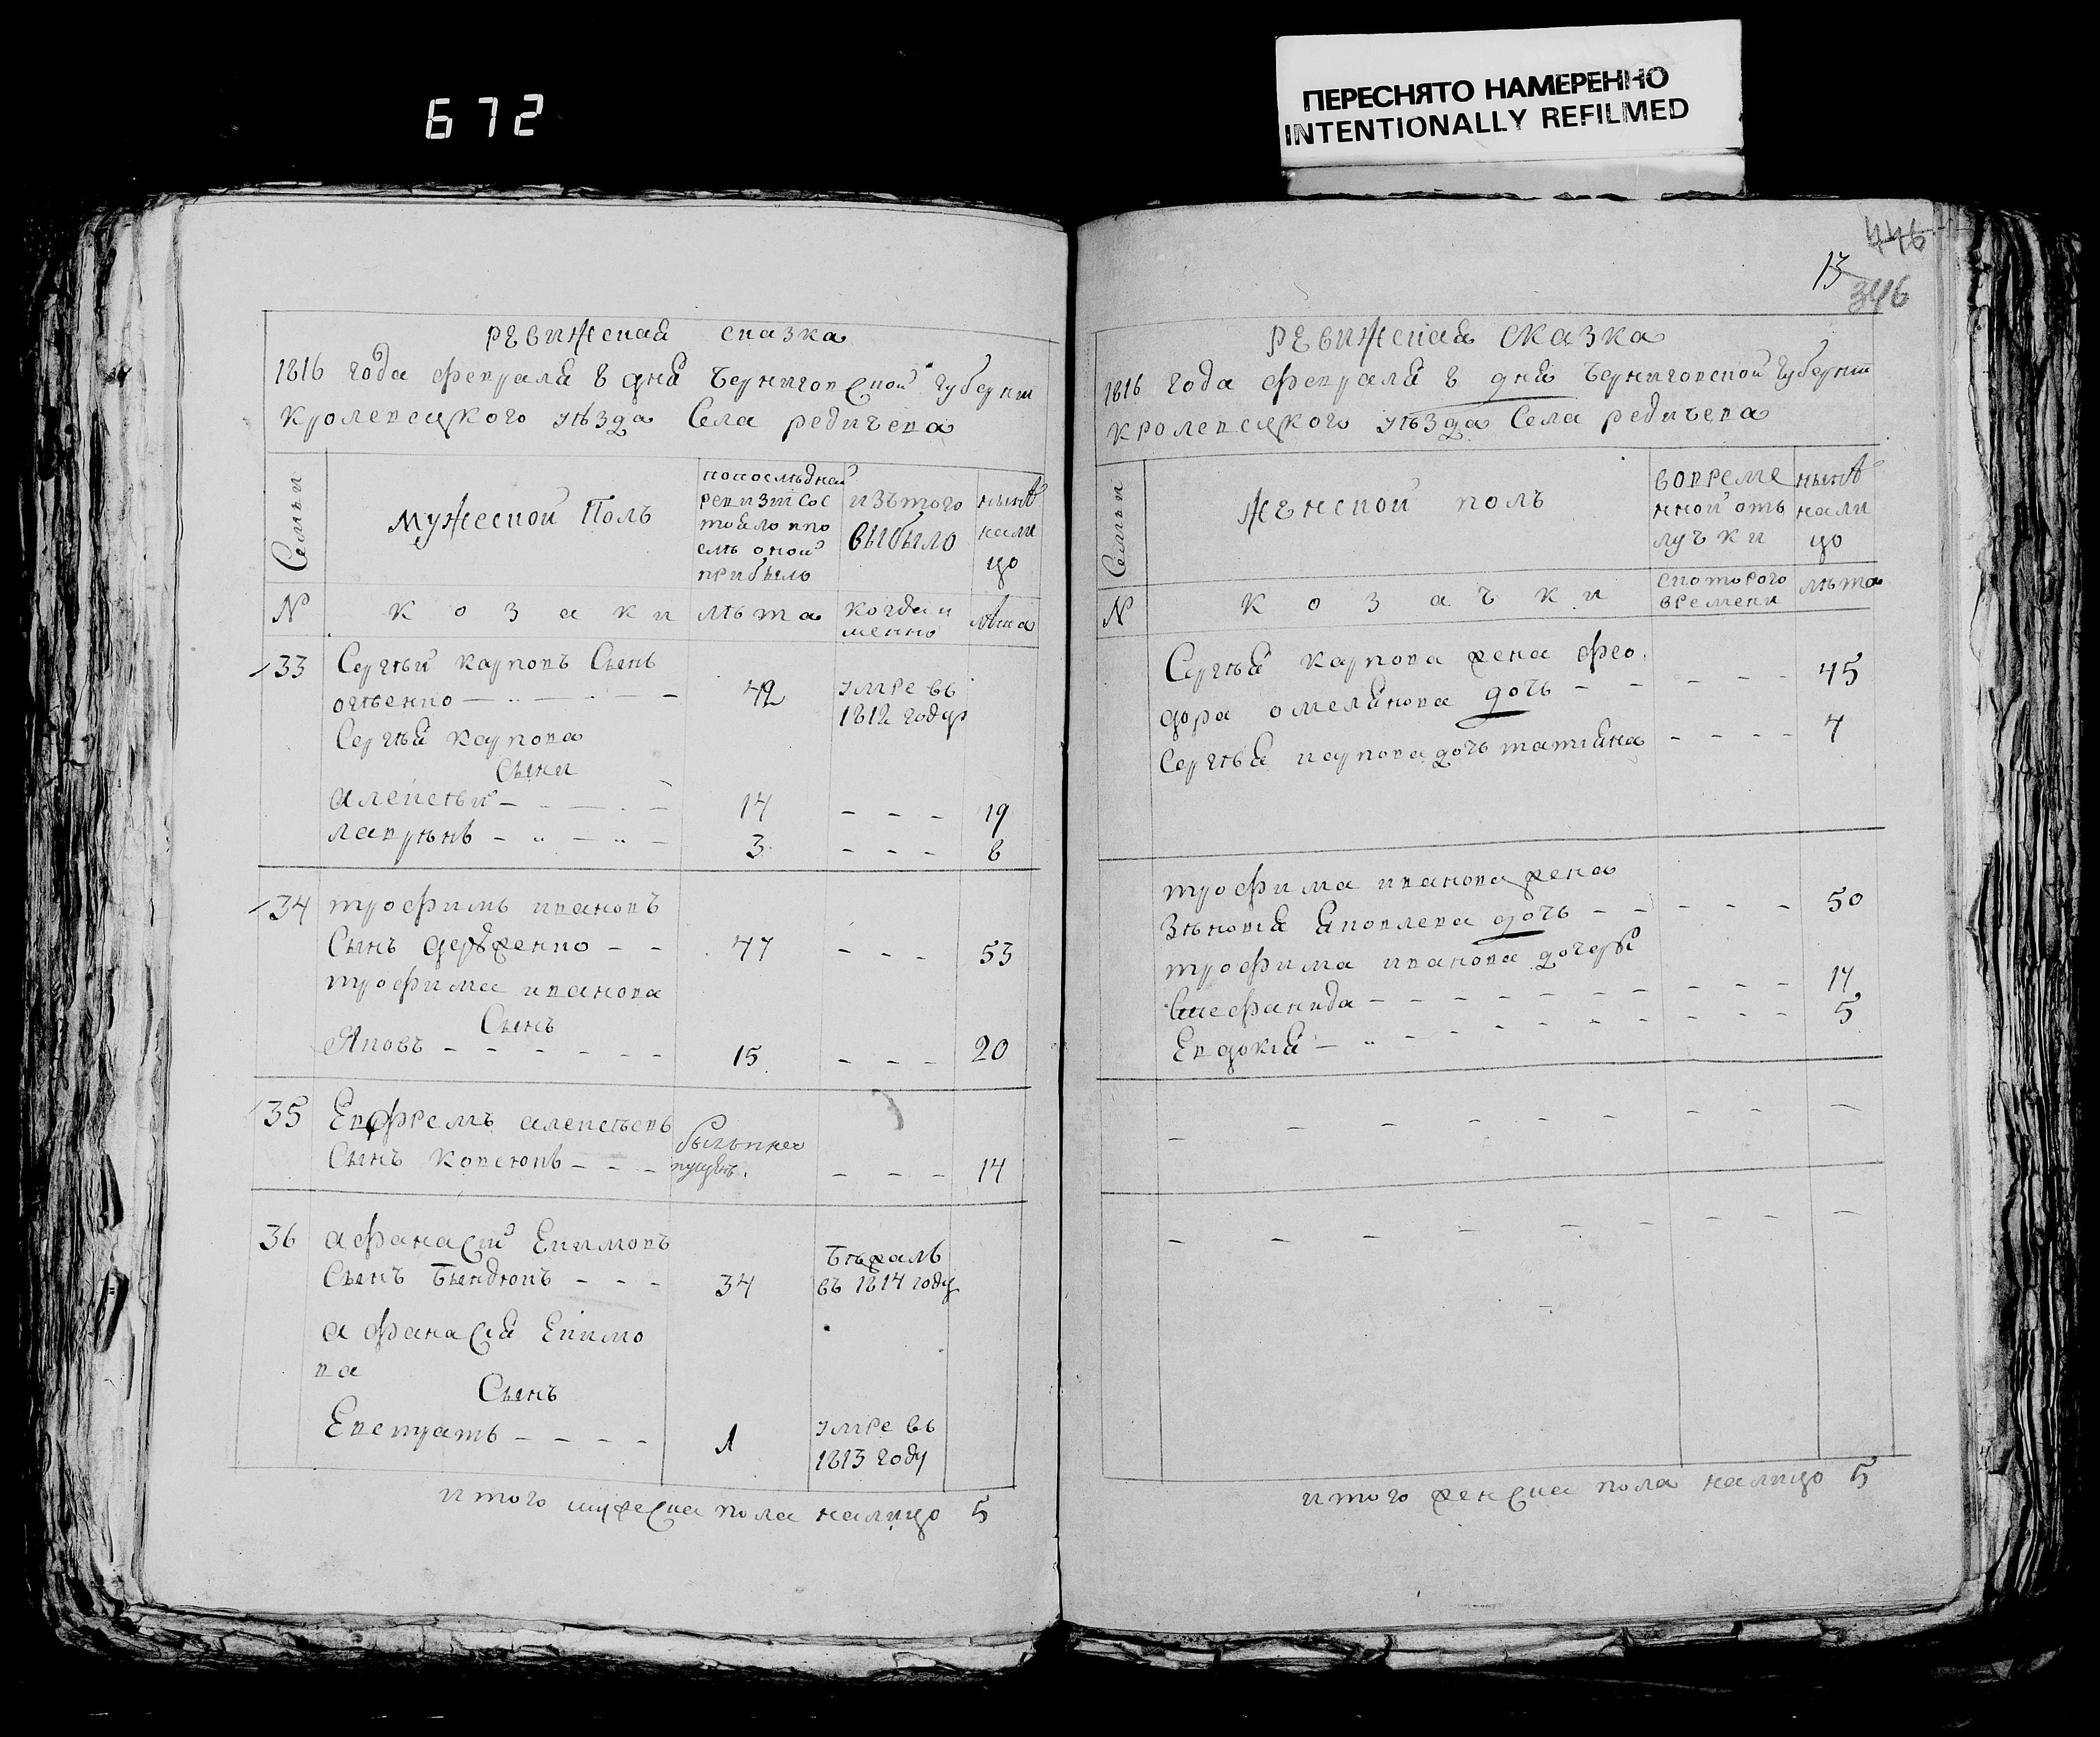 672
ПЕРЕСНЯТО НАМЕРЕННО
INTENTIONALLY REFILMED
ревижская сказка
1816 года февраля 8 дня Черниговской губернии
Кролевецкого уѣзда Села редичева
Семьи
мужеской Полъ
попослѣдней
ревизіи сос
тояло ипо
слѣ оной
прибыло
изътого
выбыло
нынѣ
нали
цо
№
козаки
лѣта
когда и
менно
лѣта
33
Сергѣй карповъ Сынъ
огѣенко
42
умре въ
1812 году
Сергѣя карпова
Сыни
алексѣй
14
19
лаврѣнъ
3
8
34
трофимъ ивановъ
Сынъ держенко
47
53
трофима иванова
Сынъ
Яковъ
15
20
35
Евфремъ алексѣевъ
Сынъ
былъ
14
36
афанасій Екимовъ
Сынъ
34
бѣжалъ
въ 1814 году
афанасія Екимо
ва
Сынъ
Евстратъ
1
умре въ
1813 году
итого мужеска пола налицо 5
446
13
346
ревижская сказка
1816 года февраля 8 дня Черниговской губернии
кролевецкого уѣзда Села редичева
Семьи
женской полъ
вовреме
нной отъ
лучки
нынѣ
нали
цо
№
козачки
скоторого
времени
лѣта
Сергѣя карпова жена фео
дора омелянова дочь
45
Сергѣя карпова дочь татіяна
7
трофима иванова жена
Зѣновія яковлева дочь
50
трофима иванова дочери
14
Евдокія
5
итого женска пола налицо 5